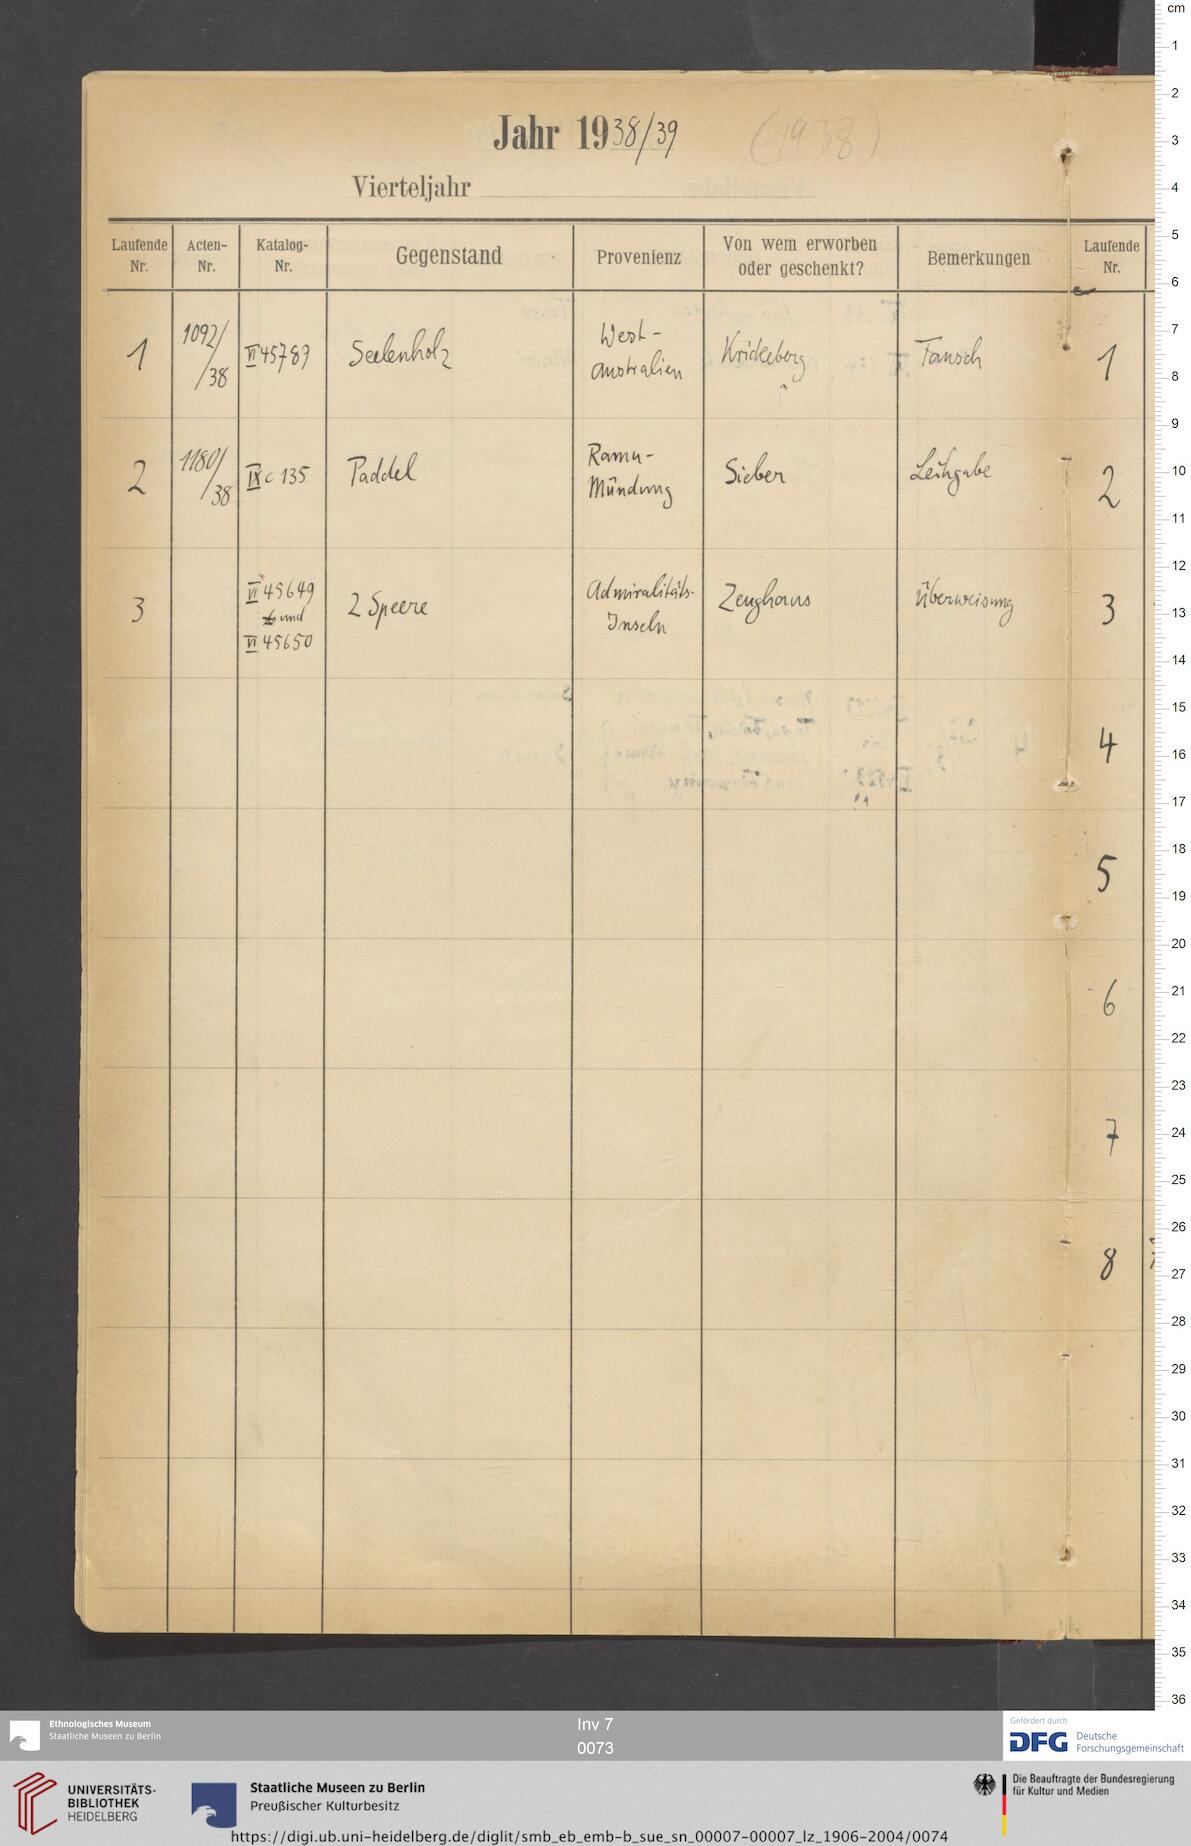 Jahr 1938/39 (1938)
Vierteljahr
Laufende Nr. Acten-Nr. Katalog-Nr. Gegenstand Provenienz Von wem erworben oder geschenkt? Bemerkungen Laufende Nr.
1 1092/38 VI 45787 Seelenholz West-australien Krickeberg Tausch 1
2 1180/38 IX c 135 Paddel Ramu-Mündung Sieber Leihgabe 2
3 VI 45649 und VI 45650 2 Speere Admiralitäts-Inseln Zeughaus Überweisung 3
4
5
6
7
8
cm
1
2
3
4
5
6
7
8
9
10
11
12
13
14
15
16
17
18
19
20
21
22
23
24
25
26
27
28
29
30
31
32
33
34
35
36
Ethnologisches Museum
Staatliche Museen zu Berlin
Inv 7
0073
Gefördert durch
DFG Deutsche
Forschungsgemeinschaft
UNIVERSITÄTS-
BIBLIOTHEK
HEIDELBERG
Staatliche Museen zu Berlin
Preußischer Kulturbesitz
Die Beauftragte der Bundesregierung
für Kultur und Medien
https://digi.ub.uni-heidelberg.de/diglit/smb_eb_emb-b_sue_sn_00007-00007_lz_1906-2004/0074